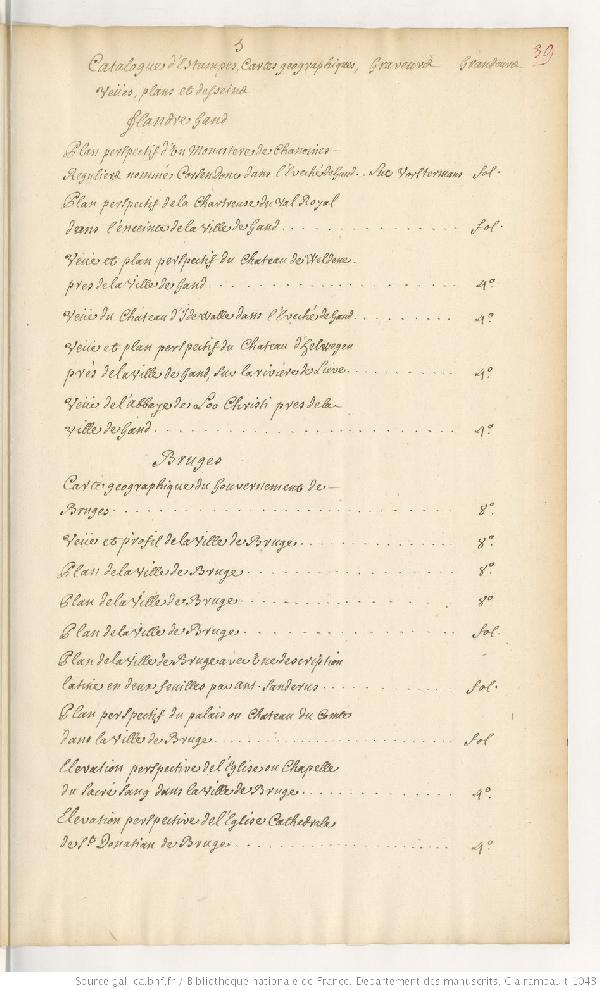 3
39
Catalogue d'Estampes, Cartes geographiques, Graveurs Grandeurs
Veües, plans et desseins
flandre Gand
Plan perspectif d'un Monastere de Chanoines
Reguliers nommés Corsendonc dans l'Eveché de Gand .. Luc Vorstermans fol.
Plan perspectif de la Chartreuse du Val Royal
dans l'enceinte de la ville de Gand . . . . . . . . . . fol.
Veüe et plan perspectif du Chateau de Veldene
pres de la ville de Gand . . . . . . . . . . 4°
Veüe du Chateau d'Idewalle dans l'Eveché de Gand . . . . . . . 4°
Veüe et plan perspectif du Chateau d'helwegen
près de la ville de Gand, sur la riviere de Lieve . . . . . . . 4°
Veüe de l'abbaye de Loo Christi pres de la
ville de Gand . . . . . . . . . . 4°
Bruges
Carte geographique du Gouvernement de
Bruges . . . . . . . . . . 8°
Veüe et profil de la ville de Bruge . . . . . . . . . . 8°
Plan de la ville de Bruge . . . . . . . . . . 8°
Plan de la ville de Bruge . . . . . . . . . . 8°
Plan de la ville de Bruge . . . . . . . . . . fol.
Plan de la ville de Bruge avec une description
latine en deux feuilles par Ant. Sanderus . . . . . . . . . . fol.
Plan perspectif du palais ou Chateau du Comte
dans la ville de Bruge . . . . . . . . . . fol
Elevation perspective de l'Eglise ou Chapelle
du Sacré Sang dans la ville de Bruge . . . . . . . . . . 4°
Elevation perspective de l'Eglise Cathedrale
de St Donatian de Bruge . . . . . . . . . . 4°
Source gallica.bnf.fr / Bibliothèque nationale de France. Département des manuscrits. Clairambault 1048